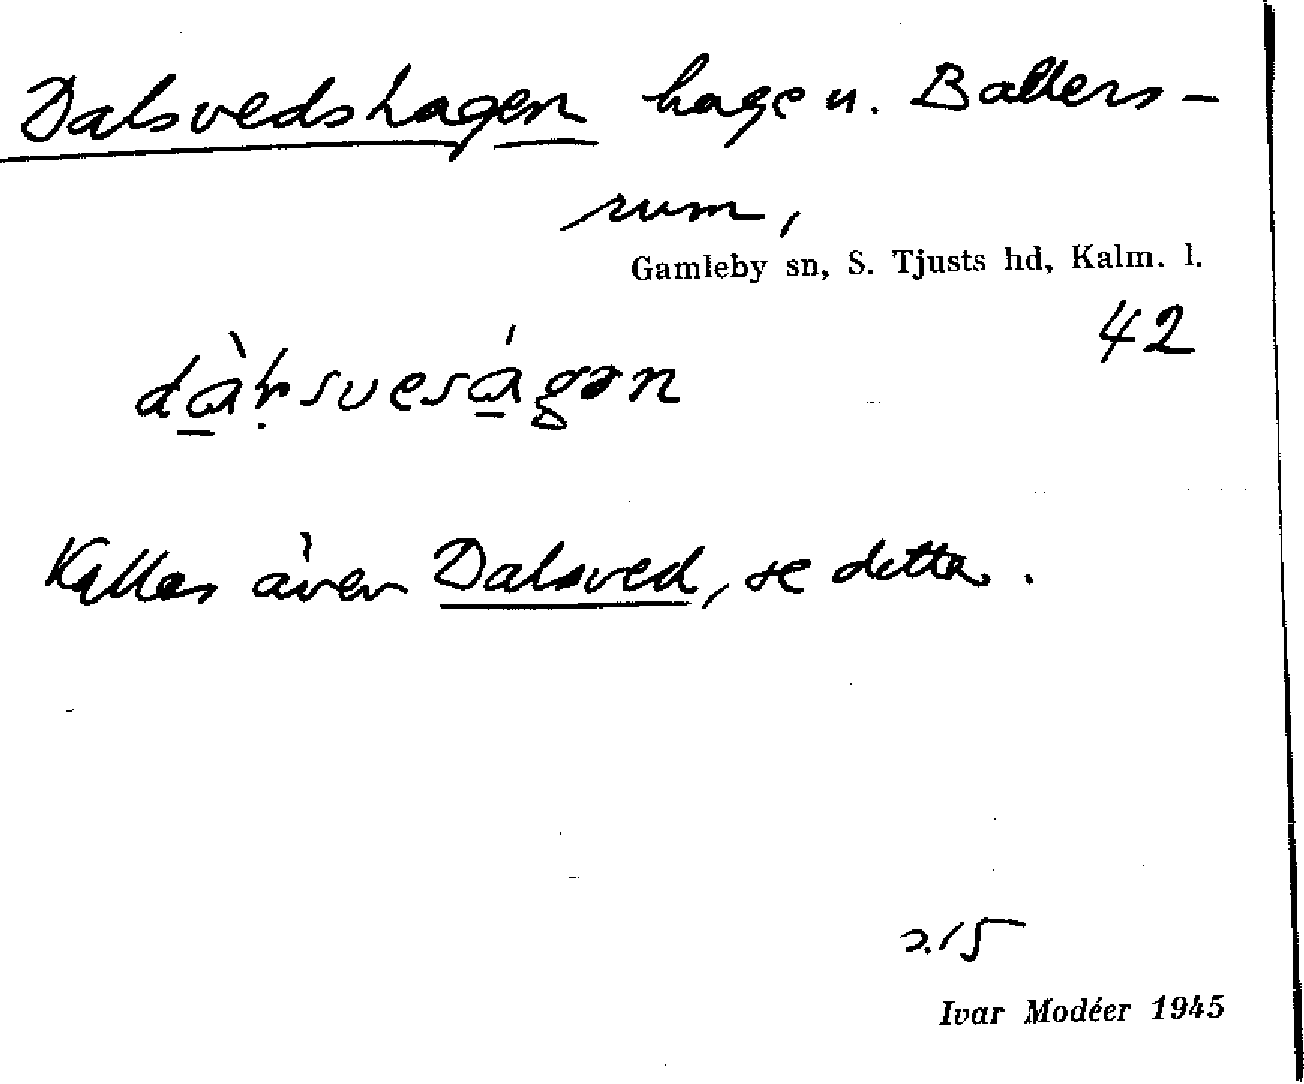 Dalsvedshagen hage u. Ballers-
rum,
Gamleby sn, S. Tjusts hd, Kalm. l.
42
Kallas även Dalsved, se detta.
Ivar Modéer 1945